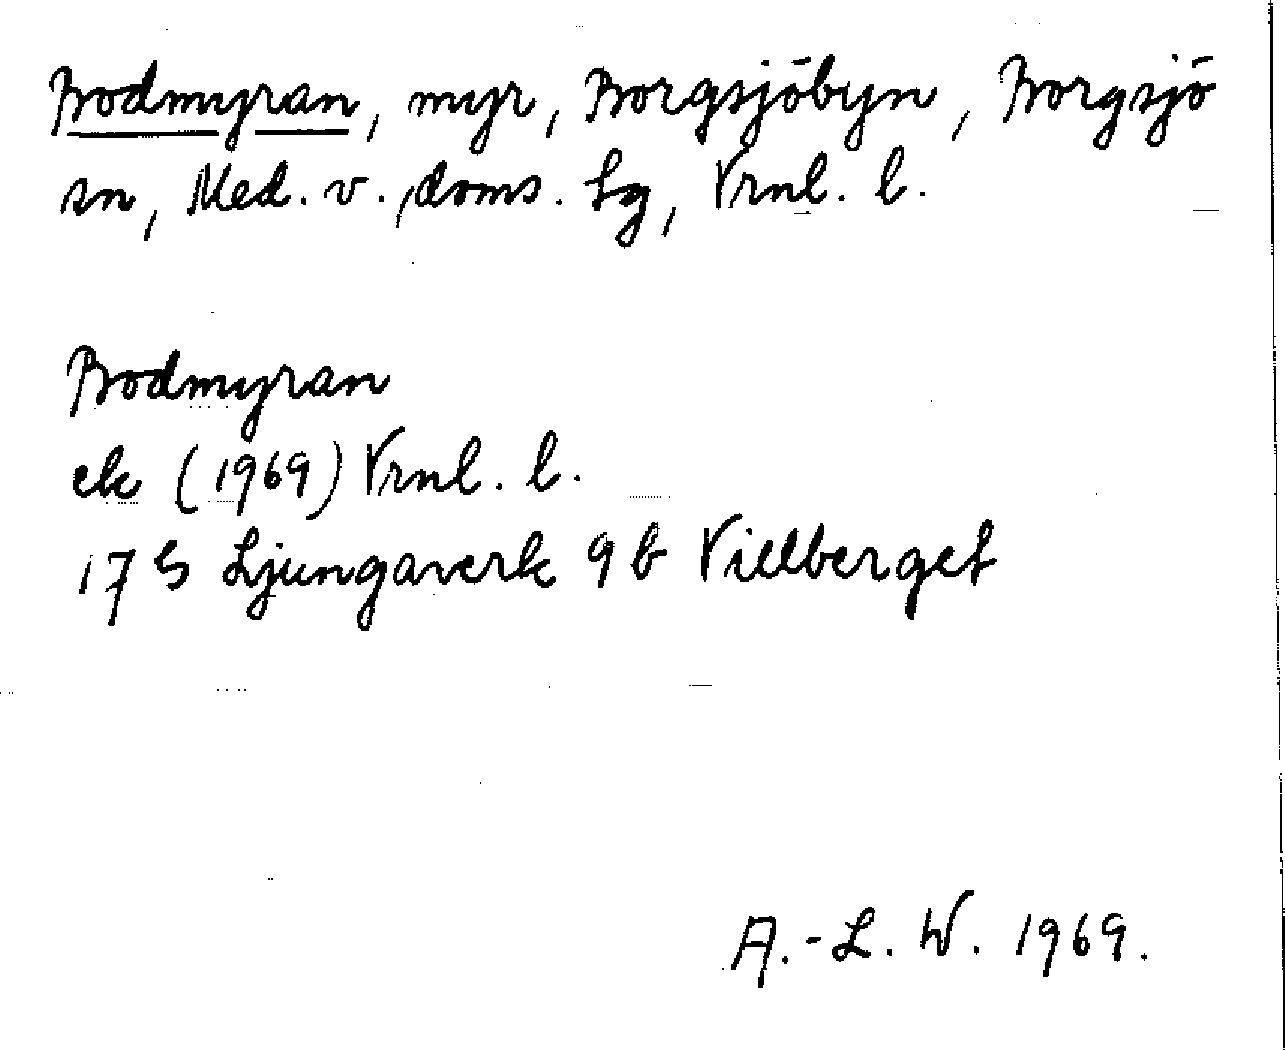 Bodmyran, myr, Borgsjöbyn, Borgsjö
sn, Med. v. doms. Lg, Vrnl. l.
Bodmyran
ek (1969) Vrnl. l.
17 G Ljungaverk 9 b Villberget
A.-L. W. 1969.